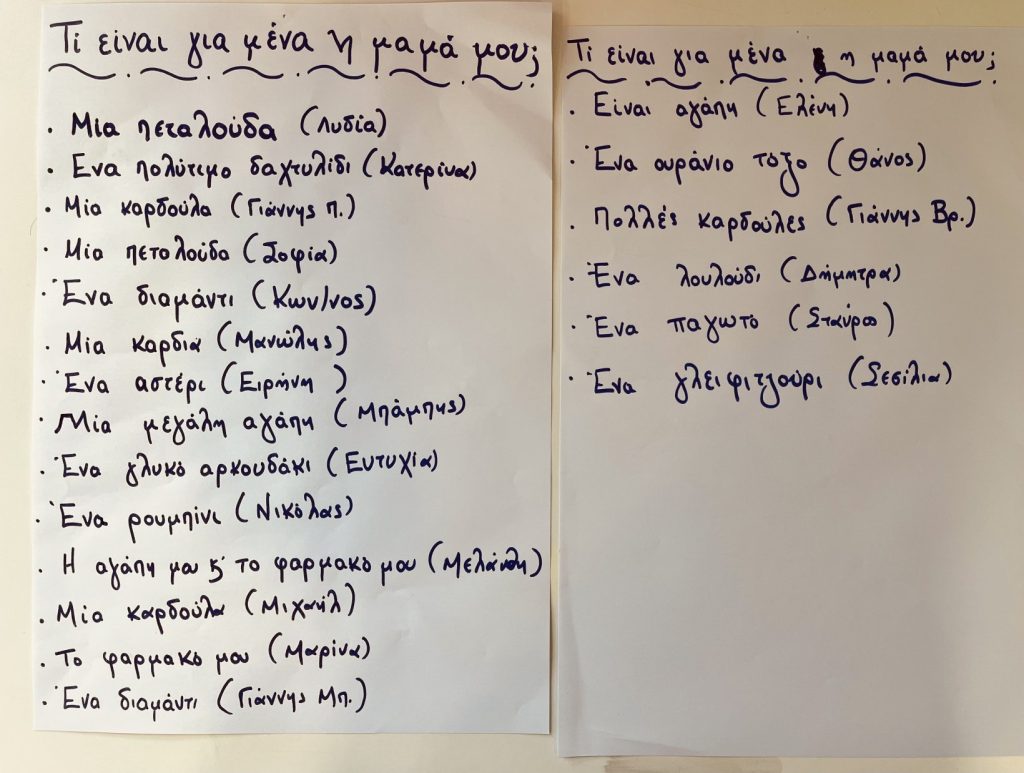 Τι είναι για μένα η μαμά μου;
· Μία πεταλούδα (Λυδία)
· Ένα πολύτιμο δαχτυλίδι (Κατερίνα)
· Μία καρδούλα (Γιάννης Π.)
· Μία πεταλούδα (Σοφία)
· Ένα διαμάντι (Κων/νος)
· Μία καρδιά (Μανώλης)
· Ένα αστέρι (Ειρήνη)
· Μία μεγάλη αγάπη (Μπάμπης)
· Ένα γλυκό αρκουδάκι (Ευτυχία)
· Ένα ρουμπίνι (Νικόλας)
· Η αγάπη μου ϗ το φαρμακό μου (Μελάνθη)
· Μία καρδούλα (Μιχαήλ)
· Το φαρμακό μου (Μαρίνα)
· Ένα διαμάντι (Γιάννης Μπ.)
Τι είναι για μένα η μαμά μου;
· Είναι αγάπη (Ελένη)
· Ένα ουράνιο τόξο (Θάνος)
· Πολλές καρδούλες (Γιάννης Βρ.)
· Ένα λουλούδι (Δήμητρα)
· Ένα παγωτό (Σταύρος)
· Ένα γλειφιτζούρι (Σεσίλια)